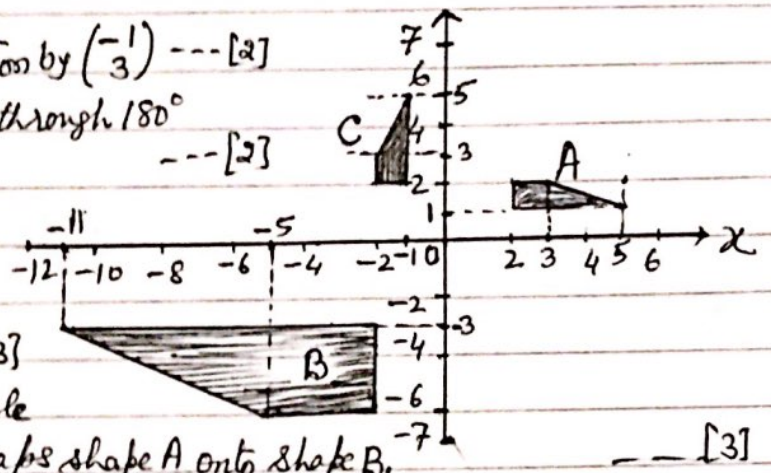 on by (-1 3) ---[2]
through 180°
---[2]
3]
le
aps shape A onto shape B.
---[3]
7
6
5
4
3
2
1
C
A
x
-11
-5
-12 -10 -8 -6 -4 -2 -1 0 2 3 4 5 6
-2
-3
-4
-6
-7
B